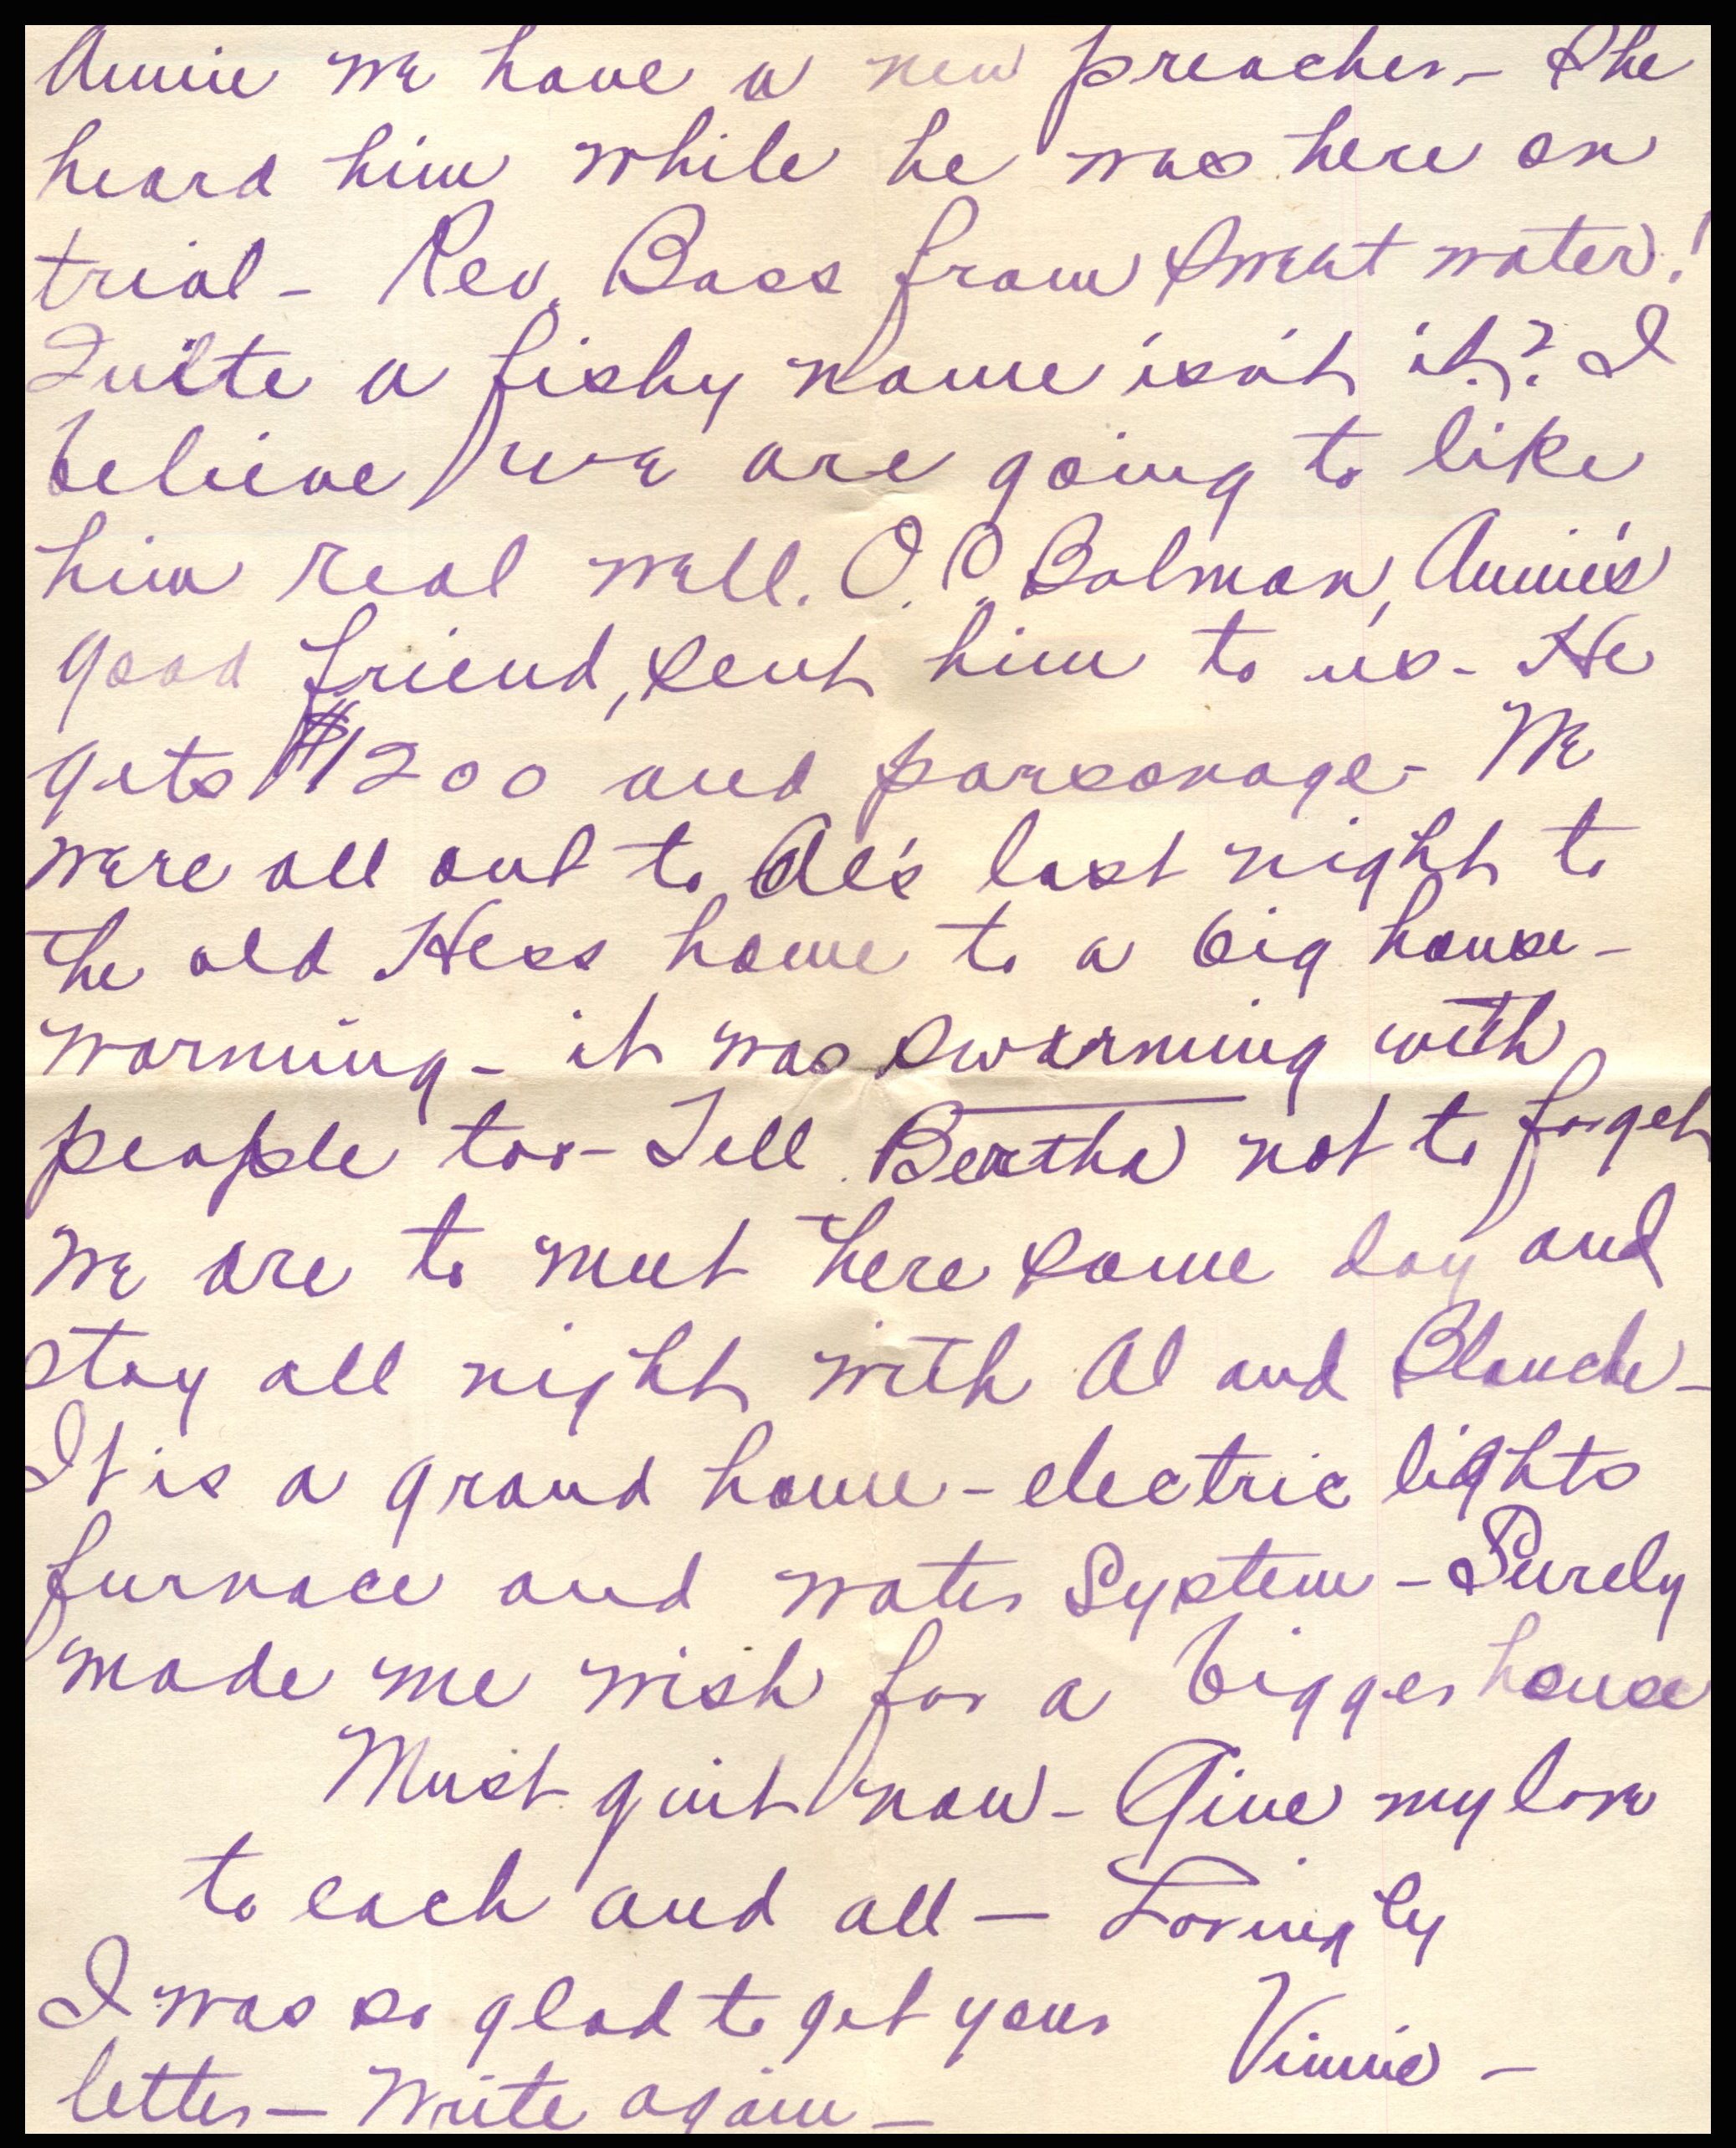 Annie we have a new preacher - She
heard him while he was here on
trial - Rev. Bass from Sweet water!
Quite a fishy name isn't it? I
believe we are going to like
him real well. O. C. Bolman, Annie's
good friend, sent him to us - He
gets $1200 and parsonage - We
were all out to Al's last night to
the old Hess home to a big house -
warming - it was swarming with
people too - Tell Bertha not to forget
we are to meet here some day and
stay all night with Al and Blanche -
It is a grand home - electric lights
furnace and water System - Surely
made me wish for a bigger house
Must quit now - Give my love
to each and all — Lovingly
Vinnie -
I was so glad to get your
letter - Write again -